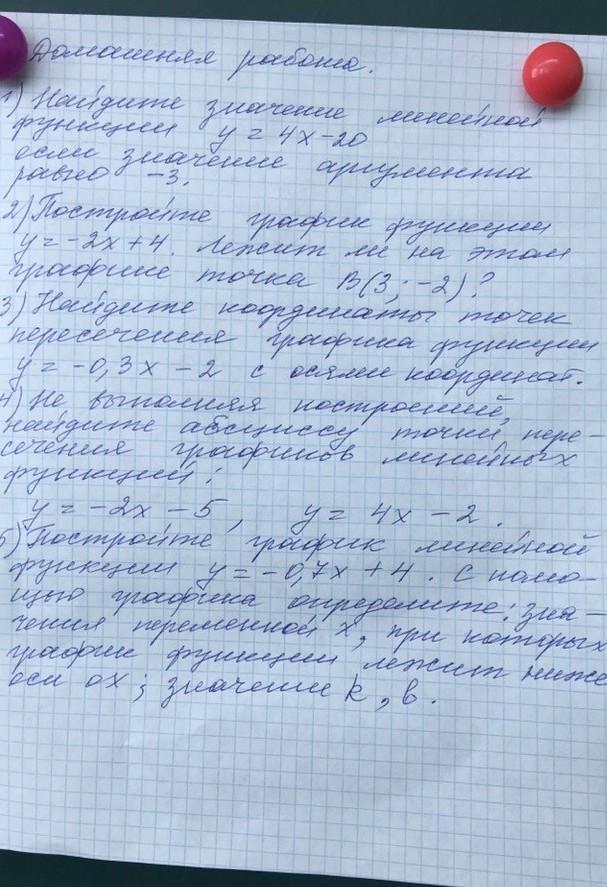 Домашняя работа.
1) Найдите значение линейной
функции y = 4x-20
если значение аргумента
равно -3.
2) Постройте график функции
y = -2x+4. Лежит ли на этом
графике точка B(3; -2)?
3) Найдите координаты точек
пересечения графика функции
y = -0,3x - 2 с осями координат.
4) Не выполняя построений,
найдите абсциссу точки пере-
сечения графиков линейных
функций:
y = -2x - 5, y = 4x - 2.
5) Постройте график линейной
функции y = -0,7x + 4. С помо-
щью графика определите: зна-
чения переменной x, при которых
график функции лежит ниже
оси ox; значения k, b.